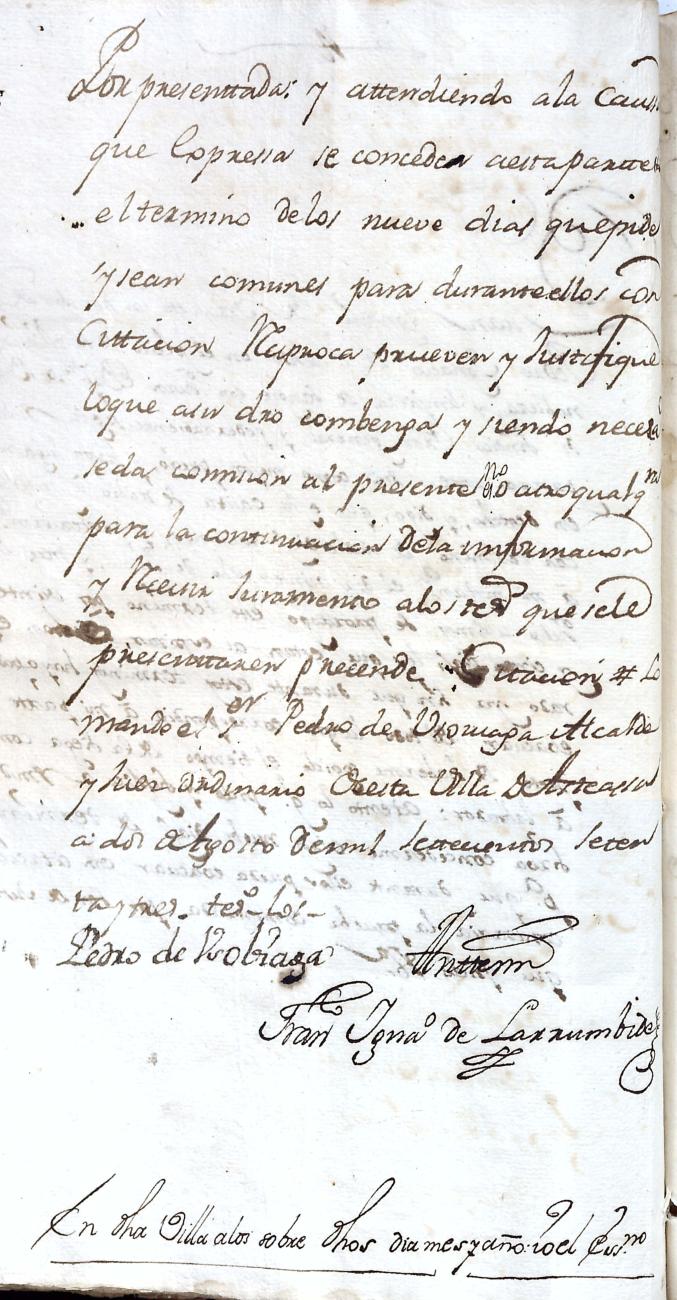 Por presenttada: y attendiendo ala Caus
que Expressa se conceden aesta partte
el termino delos nueve dias quepide
y sean comunes para durante ellos con
Cittacion Reziproca prueven y Justifique
loque asu dro combenga y siendo neces
seda comision al presente no atroqualq
para la continuacion dela informacion
y Recivir Juramento alos tes que sele
presenttaren precende Cittacion # Lo
mando el Sr Pedro de Alcalde
y Juez ordinario desta Villa de Asteassu
a dos de Agosto de mil settecientos seten
ta y tres. tesº los
Pedro de Antte mi
Franco Ignaº de Larrumbide
En dha Villa alos sobre dhos dia mes y año: io el Essno